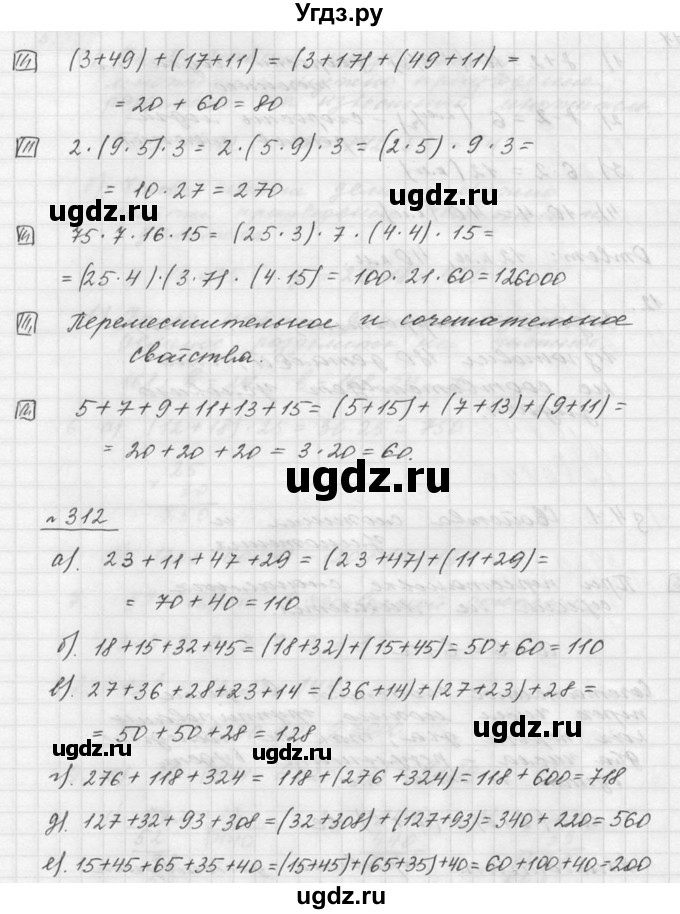 Угдз.ру
(3+49)+(17+11) = (3+17)+(49+11) =
= 20 + 60 = 80
2·(9·5)·3 = 2·(5·9)·3 = (2·5)·9·3=
= 10·27 = 270
ugdz.ru ugdz.ru
75·7·16·15 = (25·3)·7·(4·4)·15=
=(25·4)·(3·7)·(4·15)= 100·21·60=126000
Переместительное и сочетательное
свойства.
5+7+9+11+13+15= (5+15)+(7+13)+(9+11)=
= 20+20+20 = 3·20=60.
ugdz.ru
№312
а). 23+11+47+29 = (23+47)+(11+29)=
= 70+40=110
б). 18+15+32+45=(18+32)+(15+45)=50+60=110
в). 27+36+28+23+14=(36+14)+(27+23)+28=
= 50+50+28=128
ugdz.ru ugdz.ru
г). 276+118+324= 118+(276+324)=118+600=718
д). 127+32+93+308=(32+308)+(127+93)=340+220=560
е). 15+45+65+35+40=(15+45)+(65+35)+40=60+100+40=200
ugdz.ru ugdz.ru